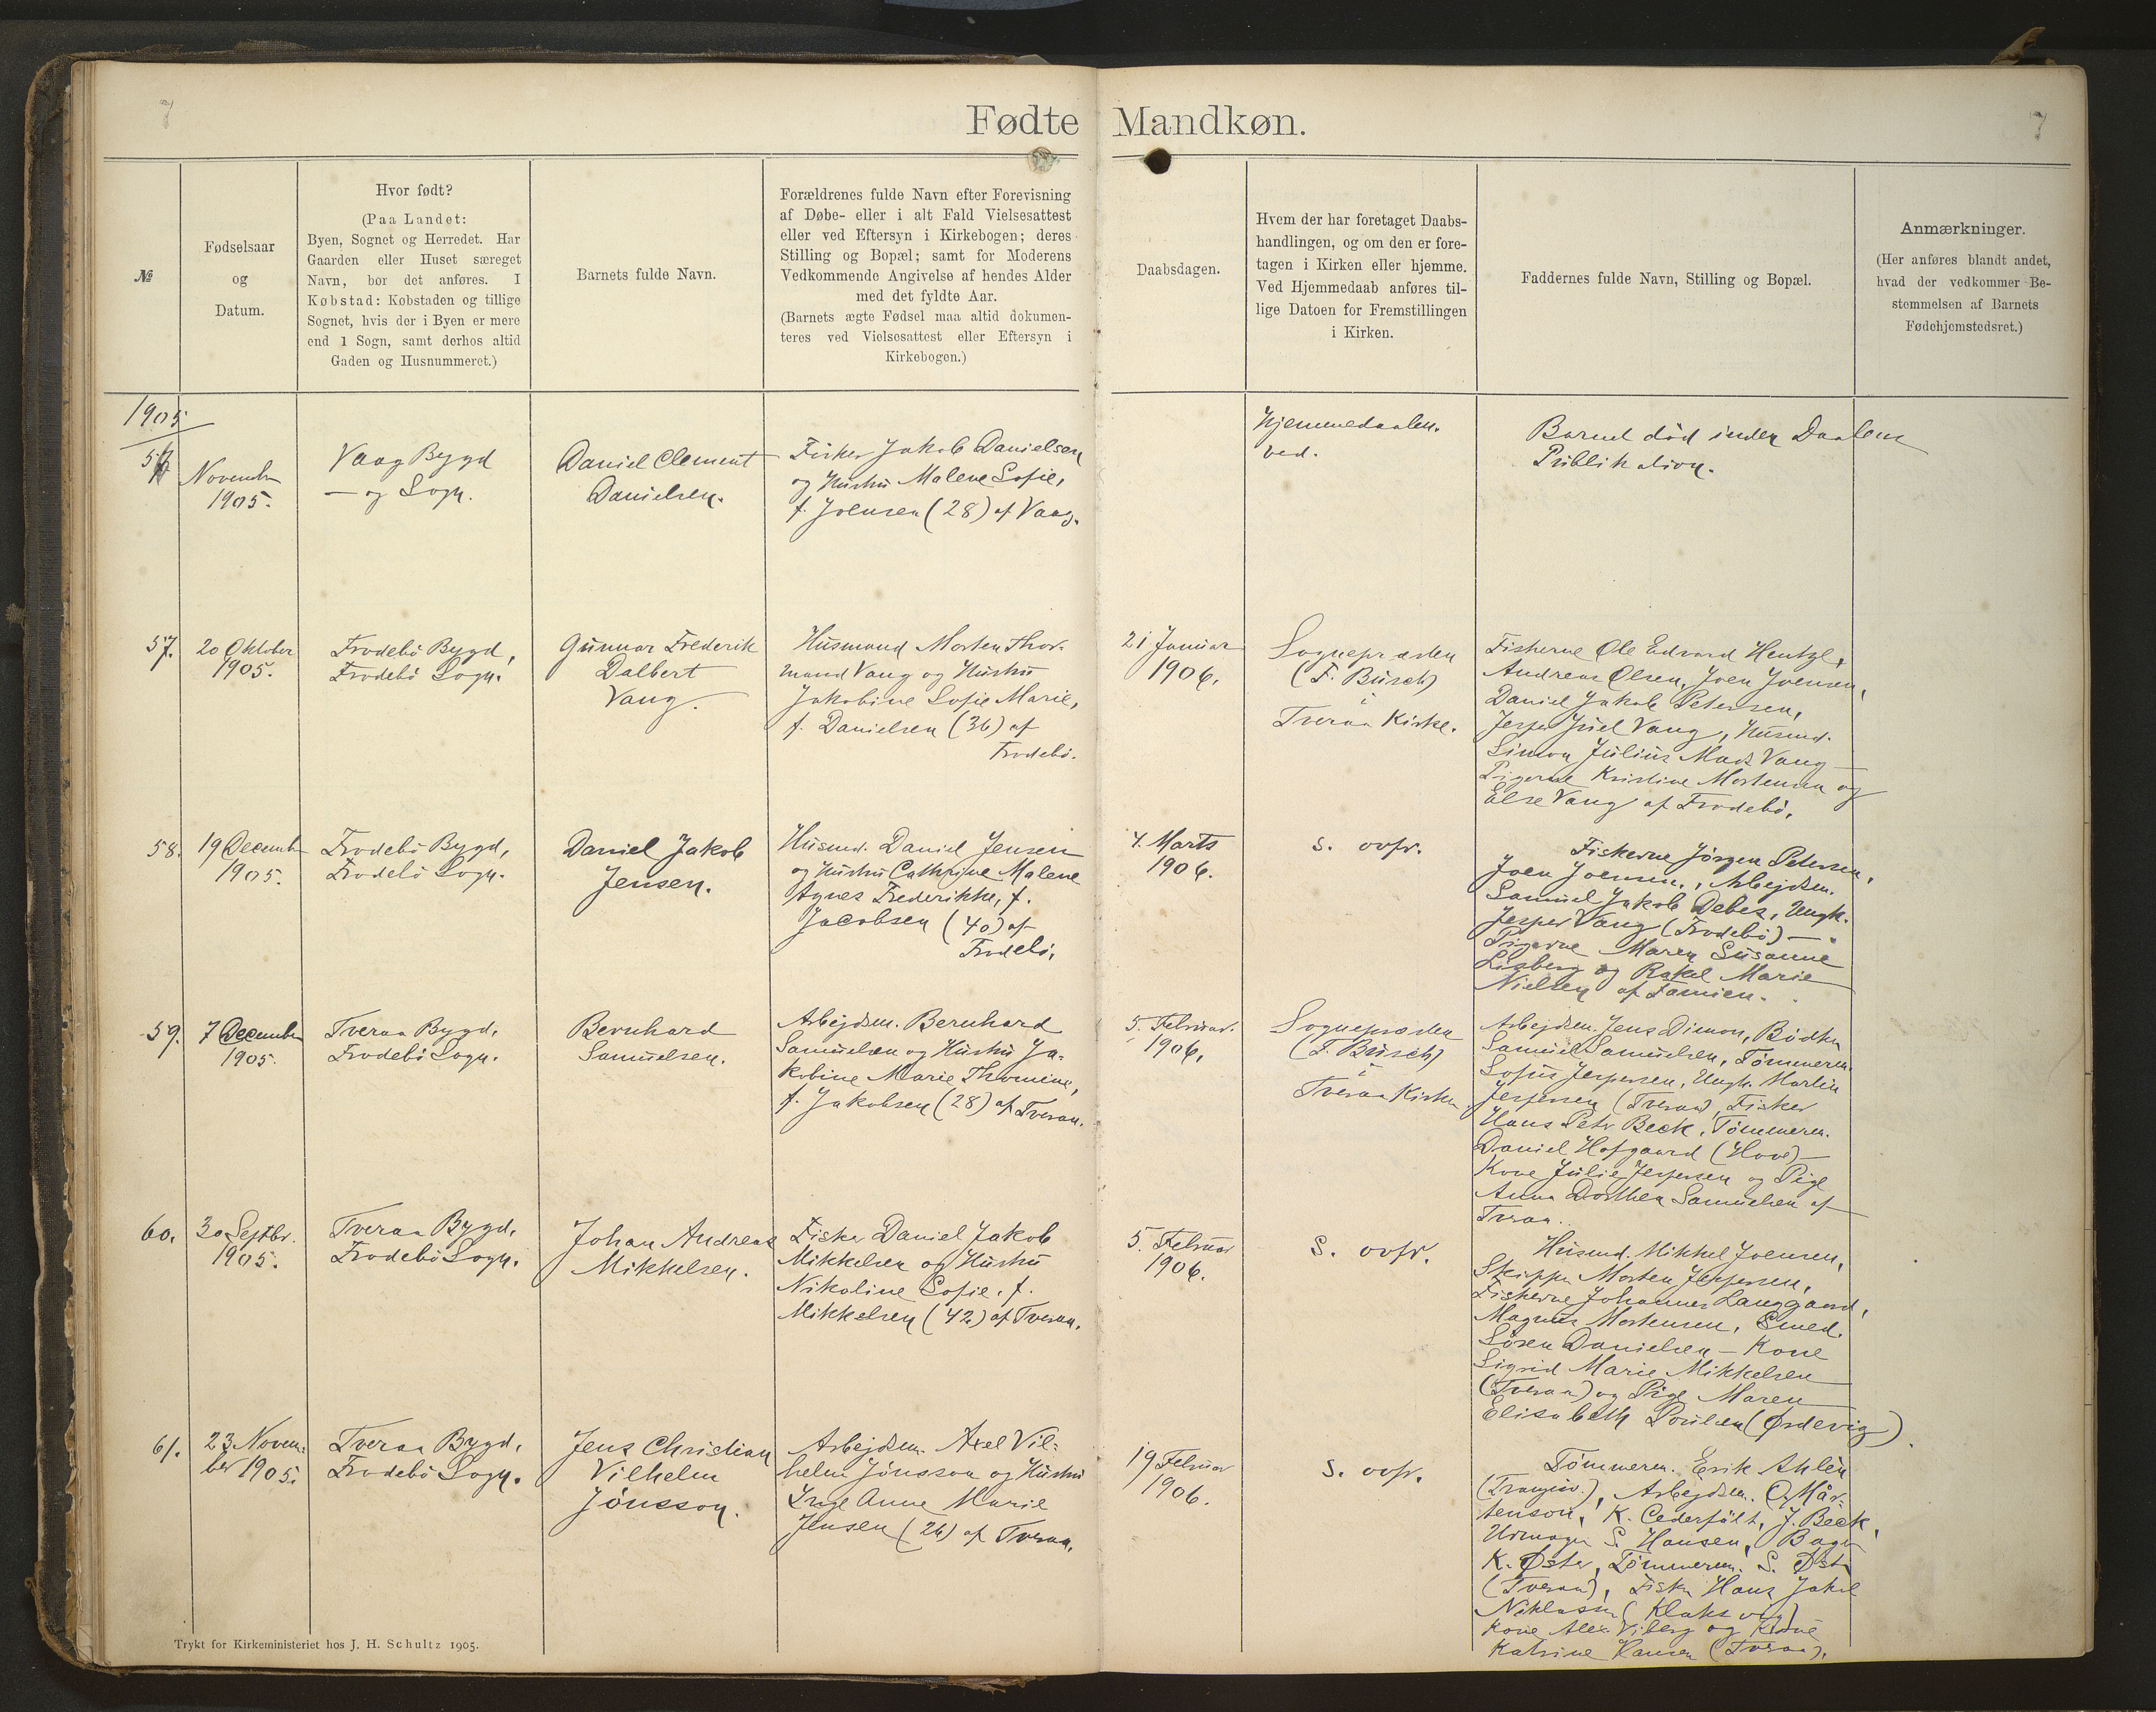 7
Fødte Mandkøn.
7
№
Fødselsaar
og
Datum.
Hvor født?
(Paa Landet:
Byen, Sognet og Herredet. Har
Gaarden eller Huset særeget
Navn, bør det anføres. I
Købstad: Købstaden og tillige
Sognet, hvis der i Byen er mere
end 1 Sogn, samt derhos altid
Gaden og Husnummeret.)
Barnets fulde Navn.
Forældrenes fulde Navn efter Forevisning
af Døbe- eller i alt Fald Vielsesattest
eller ved Eftersyn i Kirkebogen; deres
Stilling og Bopæl; samt for Moderens
Vedkommende Angivelse af hendes Alder
med det fyldte Aar.
(Barnets ægte Fødsel maa altid dokumen-
teres ved Vielsesattest eller Eftersyn i
Kirkebogen.)
Daabsdagen.
Hvem der har foretaget Daabs-
handlingen, og om den er fore-
tagen i Kirken eller hjemme.
Ved Hjemmedaab anføres til-
lige Datoen for Fremstillingen
i Kirken.
Faddernes fulde Navn, Stilling og Bopæl.
Anmærkninger.
(Her anføres blandt andet,
hvad der vedkommer Be-
stemmelsen af Barnets
Fødehjemstedsret.)
1905
56
November
1905.
Vaag Bygd
— og Sogn.
Daniel Clement
Danielsen.
Fisker Jakob Danielsen
og Hustru Malene Sofie,
f. Joensen (28) af Vaag.
Hjemmedaaben.
ved.
Barnet död under Daabens
Publikation.
57.
20 Oktober
1905.
Frodebö Bygd,
Frodebö Sogn.
Gunnar Frederik
Dalbert
Vang.
Husmand Morten Thor-
mand Vang og Hustru
Jakobine Sofie Marie,
f. Danielsen (36) af
Frodebö.
21 Januar
1906.
Sognepræsten
(F. Büsch)
i
Tveraa Kirke.
Fiskerne Ole Edvard Hentze,
Andreas Olsen, Joen Joensen,
Daniel Jakob Petersen,
Jesper Juel Vang, Husmd.
Simon Julius Mads Vang —
Pigerne Kristine Mortensen og
Else Vang af Frodebö.
58.
19 December
1905.
Frodebö Bygd,
Frodebö Sogn.
Daniel Jakob
Jensen.
Husmd. Daniel Jensen
og Hustru Cathrine Malene
Agnes Frederikke, f.
Jacobsen (40) af
Frodebö.
4. Marts
1906.
S. ovfr.
Fiskerne Jörgen Petersen,
Joen Joensen, Arbejdsm.
Samuel Jakob Debes, Ungk.
Jesper Vang (Frodebö) —
Pigerne Maren Susanne
Lisberg og Rakel Marie
Nielsen af Famien.
59.
7 December
1905.
Tveraa Bygd,
Frodebö Sogn.
Bernhard
Samuelsen.
Arbejdsm. Bernhard
Samuelsen og Hustru Ja-
kobine Marie Thomine,
f. Jakobsen (28) af Tveraa.
5. Februar.
1906.
Sognepræsten
(F. Büsch)
i
Tveraa Kirke.
Arbejdsm. Jens Dimon, Bödker
Samuel Samuelsen, Tömmerm.
Sofus Jespersen, Ungk. Martin
Jespersen (Tveraa), Fisker
Hans Peter Beck, Tömmerm.
Daniel Hofgaard (Hove) —
Kone Julie Jespersen og Pige
Anna Dorthea Samuelsen af
Tveraa.
60.
30 Septbr.
1905.
Tveraa Bygd,
Frodebö Sogn.
Johan Andreas
Mikkelsen.
Fisker Daniel Jakob
Mikkelsen og Hustru
Nikoline Sofie, f.
Mikkelsen (42) af Tveraa.
5. Februar
1906.
S. ovfr.
Husmd. Mikkel Joensen,
Skipper Morten Jespersen,
Fiskerne Johannes Langgaard,
Magnus Mortensen, Smed.
Sören Danielsen — Kone
Sigrid Marie Mikkelsen
(Tveraa) og Pige Maren
Elisabeth Poulsen (Ørdevig).
61.
23 Novem-
ber 1905.
Tveraa Bygd,
Frodebö Sogn.
Jens Christian
Vilhelm
Jönsson.
Arbejdsm. Axel Vil-
helm Jönsson og Hustru
Inge Anne Marie
Jensen (26) af Tveraa.
19 Februar
1906.
S. ovfr.
Tömmerm. Erik Ahlén
(Trangisv.), Arbejdsm. O. Mår-
tenson, K. Cederfält, J. Beck,
Urmager S. Hansen, Bager
K. Øster, Tömmerm. S. Øster
(Tveraa), Fisker Hans Jakob
Niklassen (Klaksvig)
Kone Alex. Viberg og Kone
Katrine Hansen (Tveraa).
Trykt for Kirkeministeriet hos J. H. Schultz 1905.